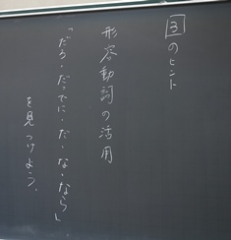 3のヒント
形容動詞の活用
「だろ・だっでに・だ・な・なら」
を見つけよう。